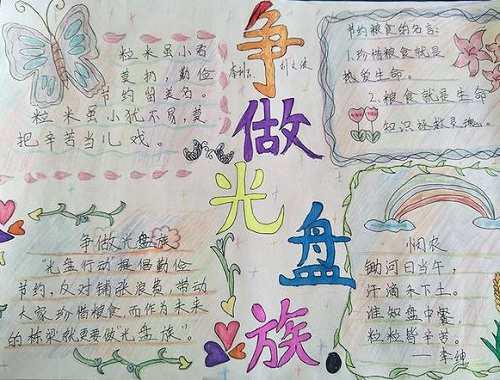 粒米虽小君
莫扔，勤俭
节约留美名。
粒米虽小犹不易，莫
把辛苦当儿戏。
争
做
光
盘
族
节约粮食的名言：
1.珍惜粮食就是
热爱生命。
2.粮食就是生命
知识拯救灵魂。
争做光盘族
“光盘行动”提倡勤俭
节约，反对铺张浪费，带动
大家珍惜粮食而作为未来
的栋梁就更要做“光盘族”。
悯农
锄日当午，
汗滴禾下土。
谁知盘中餐，
粒粒皆辛苦。
——李绅